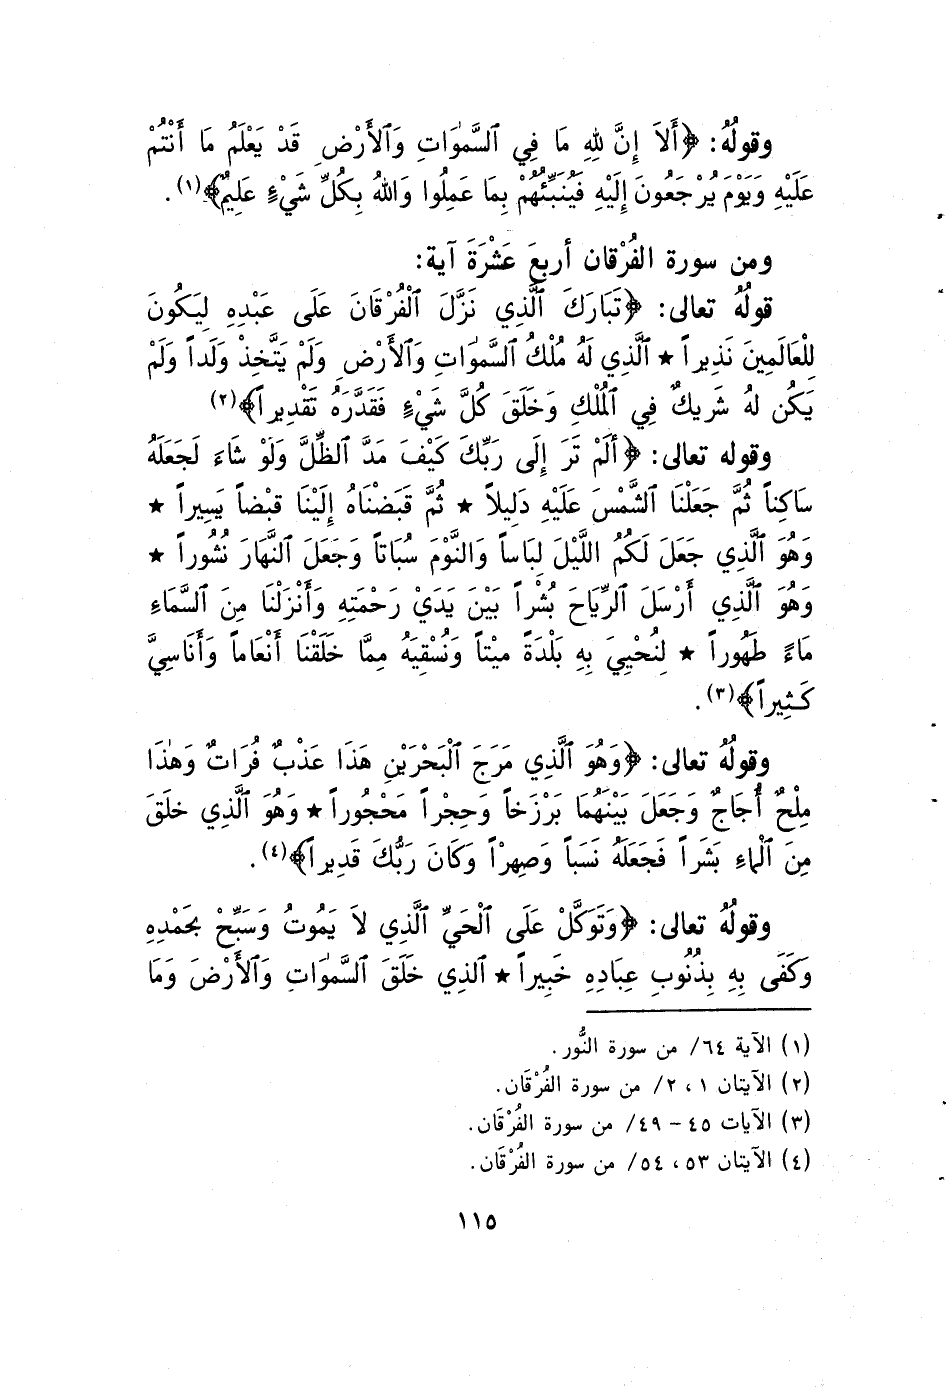 وقولُهُ: ﴿أَلاَ إِنَّ لِلهِ مَا فِي ٱلسَّمٰوَاتِ وَٱلأَرْضِ قَدْ يَعْلَمُ مَا أَنْتُمْ
عَلَيْهِ وَيَوْمَ يُرْجَعُونَ إِلَيْهِ فَيُنَبِّئُهُمْ بِمَا عَمِلُوا وَاللهُ بِكُلِّ شَيْءٍ عَلِيمٌ﴾(١).
ومن سورة الفُرْقان أربعَ عَشْرَةَ آية:
قولُهُ تعالى: ﴿تَبَارَكَ ٱلَّذِي نَزَّلَ ٱلْفُرْقَانَ عَلَى عَبْدِهِ لِيَكُونَ
لِلْعَالَمِينَ نَذِيراً ★ ٱلَّذِي لَهُ مُلْكُ ٱلسَّمٰوَاتِ وَٱلأَرْضِ وَلَمْ يَتَّخِذْ وَلَداً وَلَمْ
يَكُن لهُ شَرِيكٌ فِي ٱلْمُلْكِ وَخَلَقَ كُلَّ شَيْءٍ فَقَدَّرَهُ تَقْدِيراً﴾(٢)
وقوله تعالى: ﴿أَلَمْ تَرَ إِلَى رَبِّكَ كَيْفَ مَدَّ ٱلظِّلَّ وَلَوْ شَاءَ لَجَعَلَهُ
سَاكِناً ثُمَّ جَعَلْنَا ٱلشَّمْسَ عَلَيْهِ دَلِيلاً ★ ثُمَّ قَبَضْنَاهُ إِلَيْنَا قبْضاً يَسِيراً ★
وَهُوَ ٱلَّذِي جَعَلَ لَكُمُ اللَّيْلَ لِبَاساً وَالنَّوْمَ سُبَاتاً وَجَعَلَ ٱلنَّهَارَ نُشُوراً ★
وَهُوَ ٱلَّذِي أَرْسَلَ ٱلرِّيَاحَ بُشْراً بَيْنَ يَدَيْ رَحْمَتِهِ وَأَنْزَلْنَا مِنَ ٱلسَّمَاءِ
مَاءً طَهُوراً ★ لِنُحْيِيَ بِهِ بَلْدَةً ميْتاً وَنُسْقِيَهُ مِمَّا خَلَقْنَا أَنْعَاماً وَأَنَاسِيَّ
كَثِيراً﴾(٣).
وقولُهُ تعالى: ﴿وَهُوَ ٱلَّذِي مَرَجَ ٱلْبَحْرَيْنِ هَذَا عَذْبٌ فُرَاتٌ وَهٰذَا
مِلْحٌ أُجَاجٌ وَجَعَلَ بَيْنَهُمَا بَرْزَخاً وَحِجْراً مَحْجُوراً ★ وَهُوَ ٱلَّذِي خلَقَ
مِنَ ٱلْمَاءِ بَشَراً فَجَعَلَهُ نَسَباً وَصِهْراً وَكَانَ رَبُّكَ قَدِيراً﴾(٤).
وقولُهُ تعالى: ﴿وَتَوَكَّلْ عَلَى ٱلْحَيِّ ٱلَّذِي لاَ يَمُوتُ وَسَبِّحْ بِحَمْدِهِ
وَكَفَى بِهِ بِذُنُوبِ عِبَادِهِ خَبِيراً ★ ٱلذِي خَلَقَ ٱلسَّمٰوَاتِ وَٱلأَرْضَ وَمَا
(١) الآية ٦٤/ من سورة النُّور.
(٢) الآيتان ١، ٢/ من سورة الفُرْقَان.
(٣) الآيات ٤٥ - ٤٩/ من سورة الفُرْقَان.
(٤) الآيتان ٥٣، ٥٤/ من سورة الفُرْقَان.
١١٥